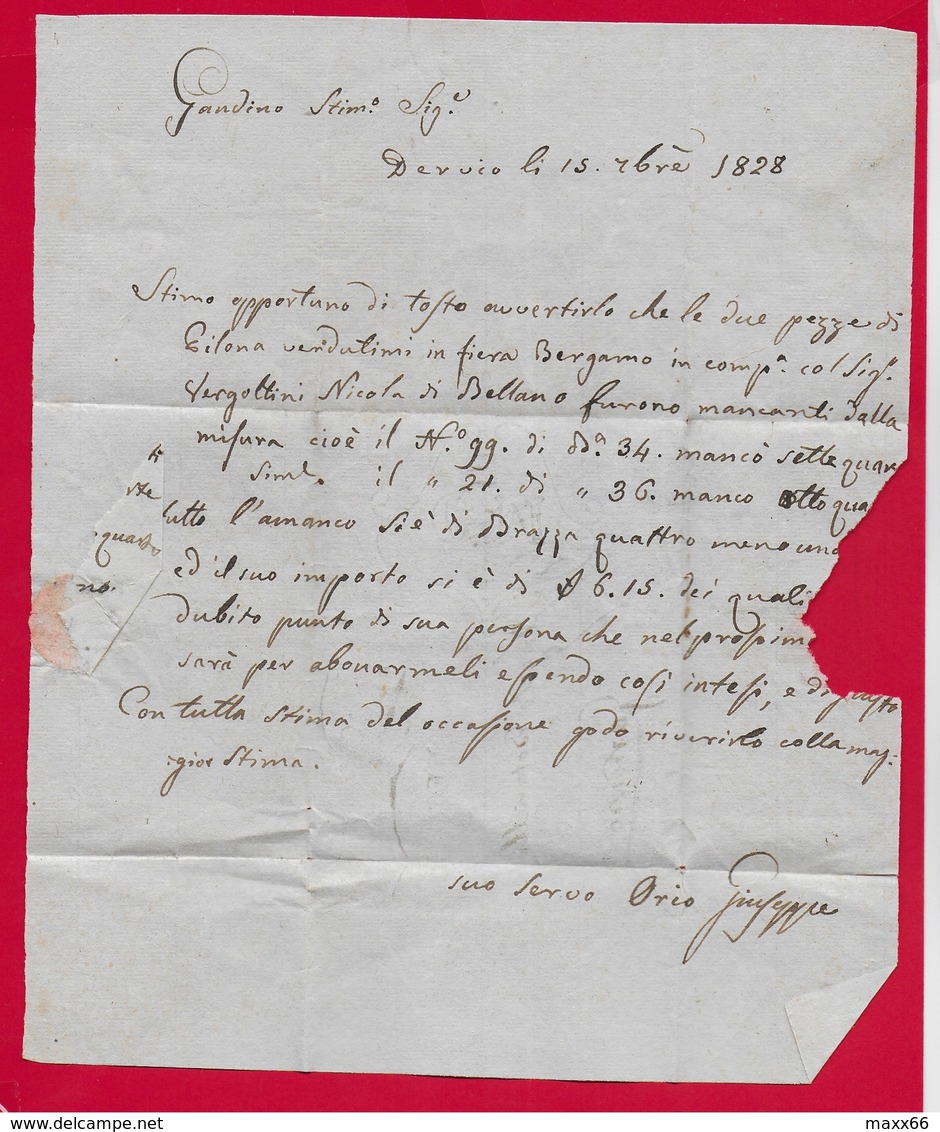 Gandino Stim.º Sig.e
Dervio li 15. 7brè 1828
Stimo opportuno di tosto avvertirlo che le due pezze di
Pilona vendutimi in fiera Bergamo in comp.a col Sig.r
Vergottini Nicola di Bellano furono mancanti dalla
misura cioè il N.º 99. di B.a 34. mancò sette quar
siml. il " 21. di " 36. manco otto qua
tutto l'amanco si è di Brazza quattro meno uno
ed il suo importo si è di 6.15. dei quali
dubito punto di sua persona che nel prossim
sarà per abbuarmeli essendo così intesi, e di giusto
Con tutta stima del occasione godo riverirlo colla mag-
gior stima.
rte
quarto
no.
suo servo Orio Giuseppe
maxx66